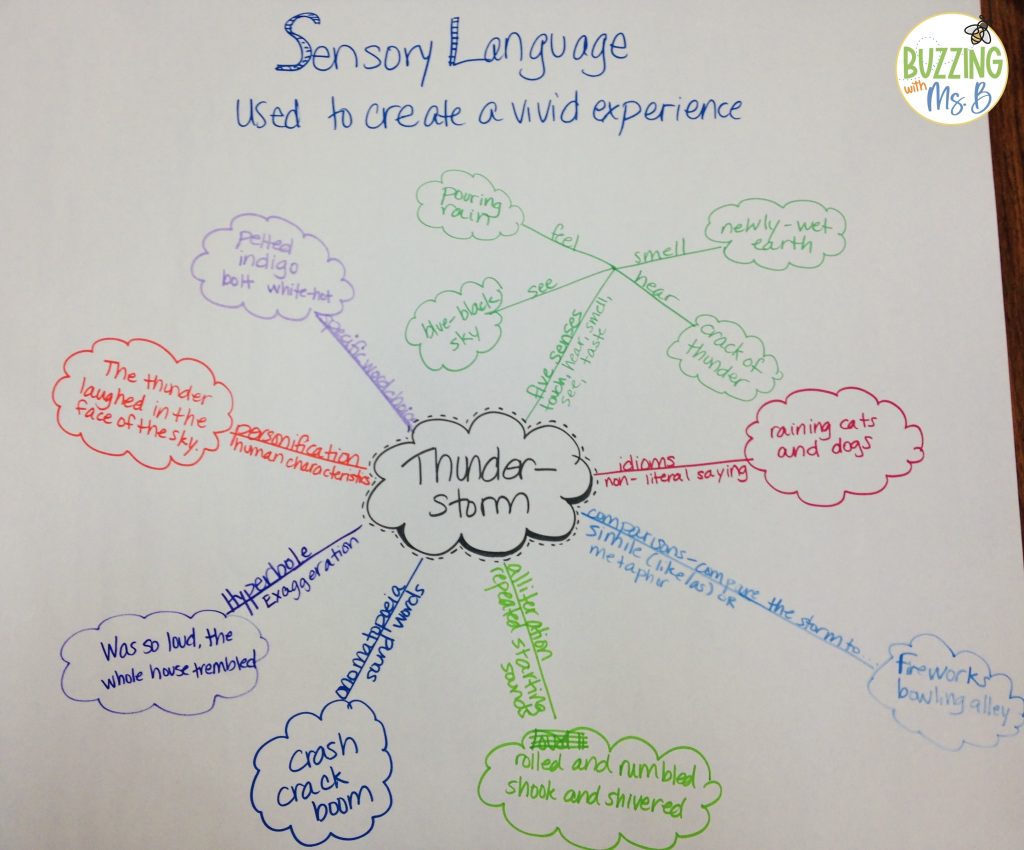 Sensory Language
Used to create a vivid experience
BUZZING
with
Ms. B
pouring
rain
feel
newly-wet
earth
smell
see
blue-black
sky
hear
crack of
thunder
five senses
touch, hear, smell,
see, taste
pelted
indigo
bolt white-hot
specific word choice
The thunder
laughed in the
face of the sky.
personification
human characteristics
Thunder-
storm
idioms
non-literal saying
raining cats
and dogs
comparisons-compare the storm to...
simile (like/as) or
metaphor
fireworks
bowling alley
Hyperbole
Exaggeration
Was so loud, the
whole house trembled
onomatopoeia
sound words
crash
crack
boom
alliteration
repeated starting
sounds
rolled and rumbled
shook and shivered